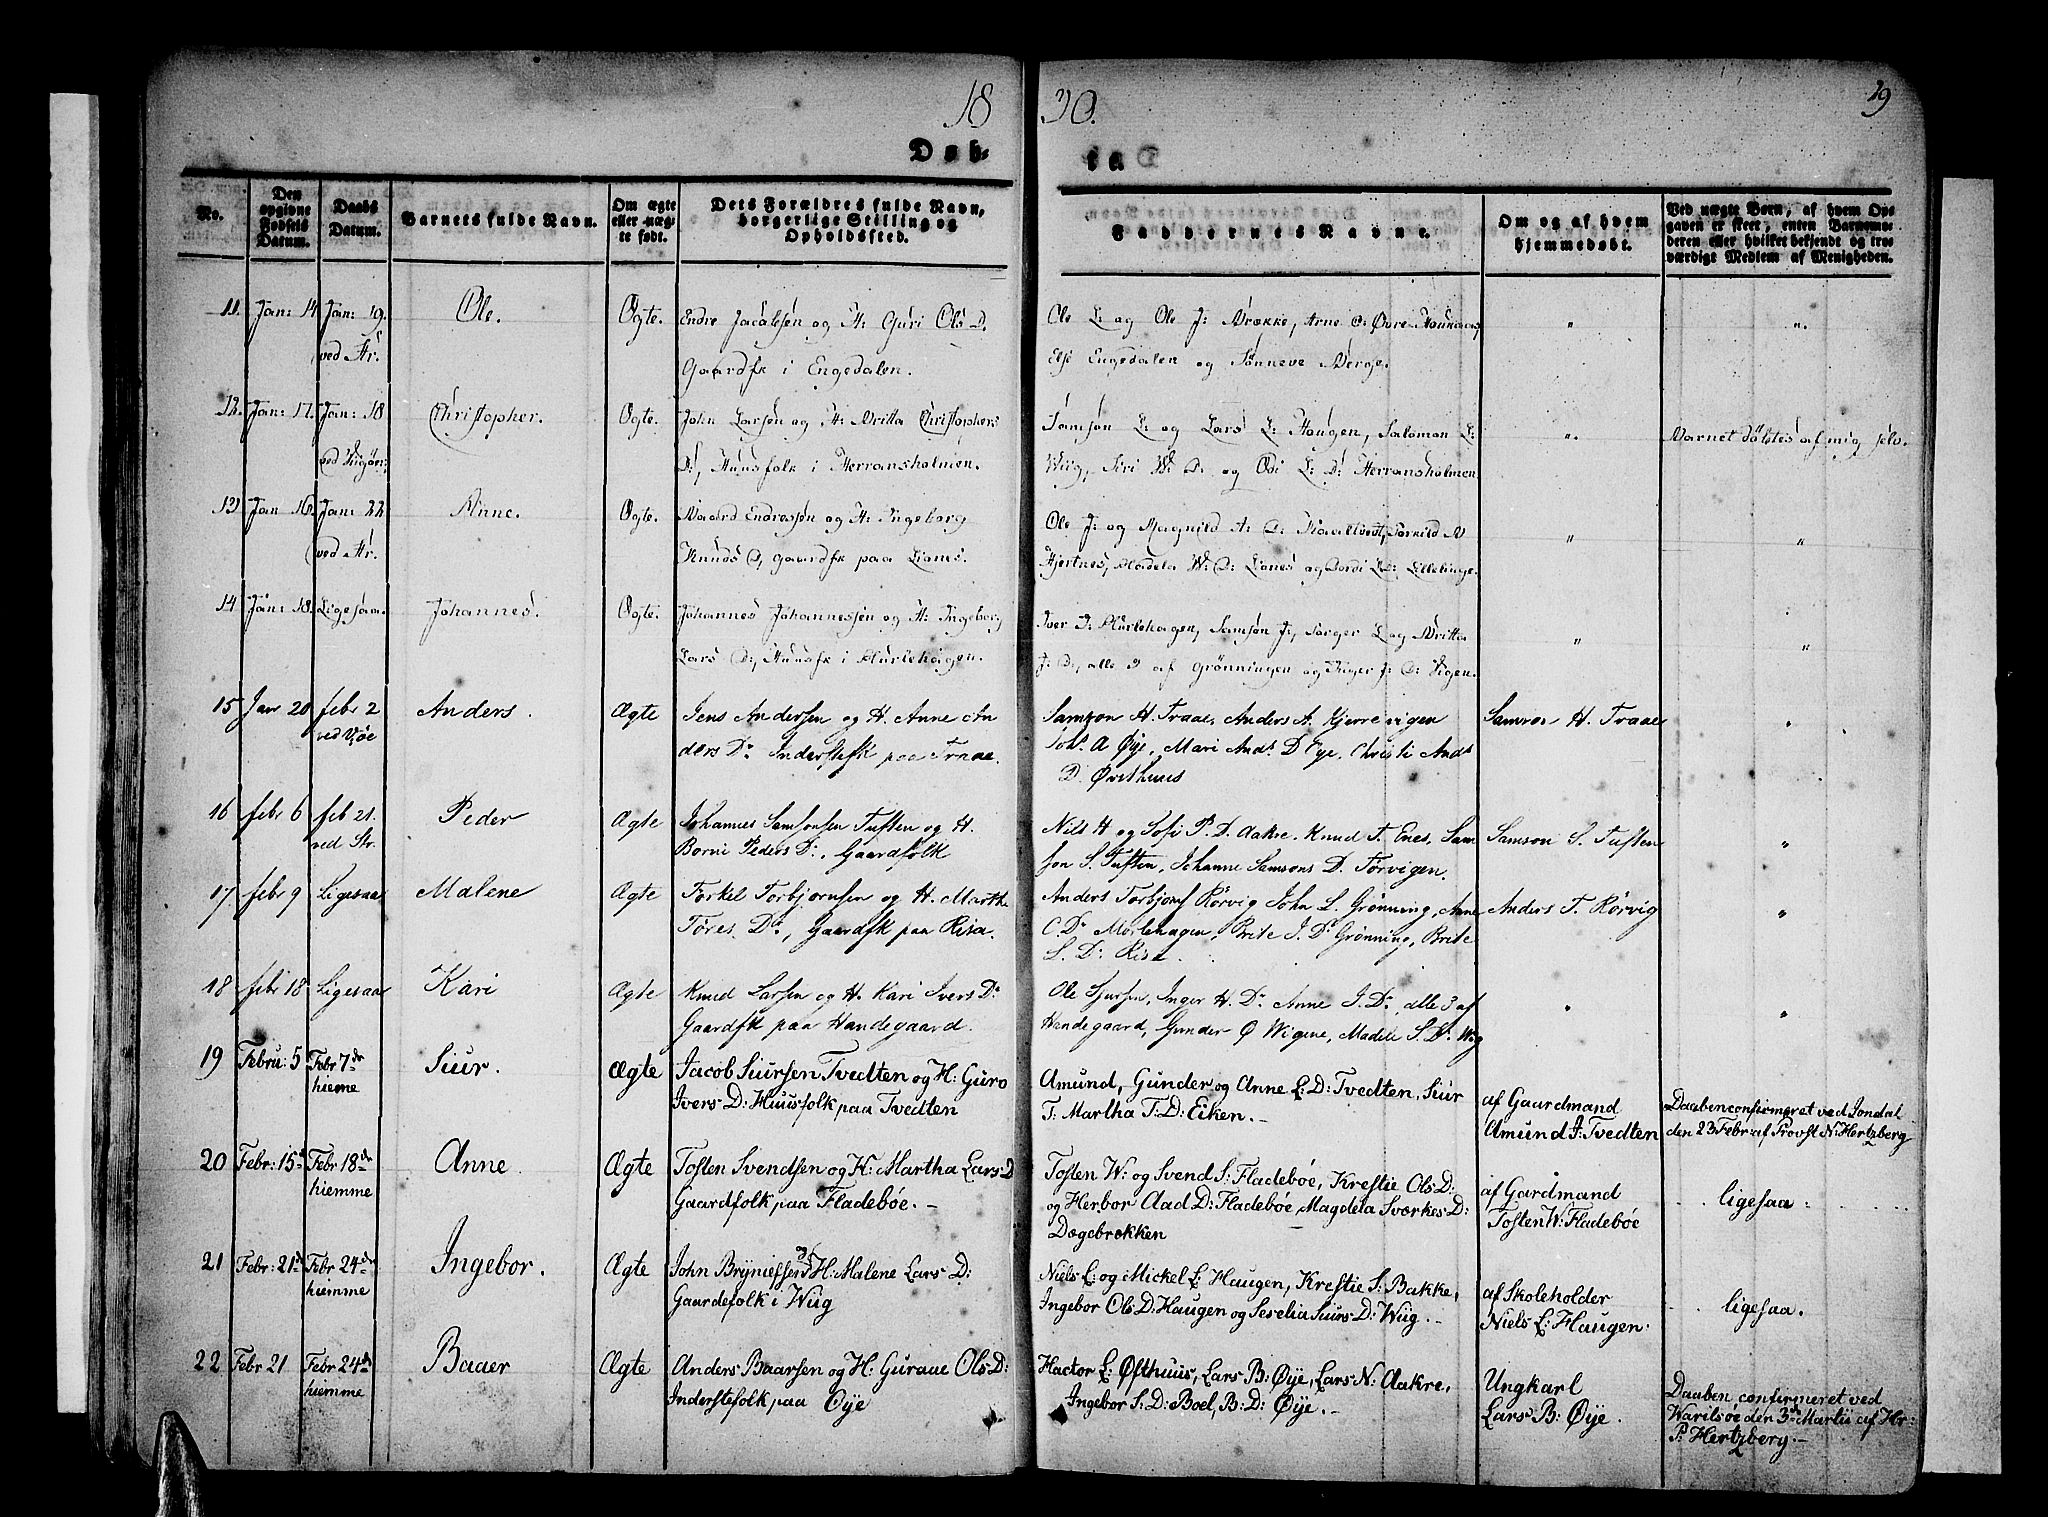 18 30. 29
Døb- te
No. Den opgivne Fødsels Datum. Daabs Datum. Barnets fulde Navn. Om ægte eller uægte født. Dets Forældres fulde Navn, borgerlige Stilling og Opholdssted. Faddernes Navne. Om og af hvem hjemmedøbt. Ved uægte Børn, af hvem Opgaven er skeet, enten Barnemoderen eller hvilket bekjendt og troværdigt Medlem af Menigheden.
11. Jan: 14 Jan: 19. Ole. Ægte. Endre Jacobsen og H: Guri Ols D. Ole L: og Ole J: Brække, Arne O: Øvre " ".
ved Str. Gaardfk i Engedalen. Else Engedalen og Sønneve Berge.
12. Jan: 17. Jan: 18 Christopher. Ægte. John Larsen og H: Britta Christophers Samson L: og Lars L: Haugen, Salomon L: ". Barnet døbtes af mig selv.
ved D:, Huusfolk i Herransholmen. Wiig, Siri D: og Odi L: D: Herransholmen.
13 Jan 16. Jan: 22 Anne. Ægte. Baard Endresen og H: Ingeborg Ole J: og Magnild A: D: " "
ved Str. Knuds D, gaardfk paa Lianes. Hjertnes, D: Lianes og L: D: Lillelinge.
14 Jan: 18. Ligesaa. Johannes. Ægte. Johannes Johannessen og H: Ingeborg Iver J: Murlehagen, Samson J:, Torger L og Britta " "
Lars D:, Huusfk i Murlehagen. J: D:, alle 3 af Grønningen og Inger J: D: Vigen.
15 Jan 20 febr 2 Anders. Ægte Jens Andersen og H. Anne An Samson H. Traae, Anders A. Kjerrevigen Samson H. Traae "
ved ders D: Inderstefk paa Traae. Joh: A Øye, Mari Ands D Øye, Christi Ands
D. Østhuus
16 febr 6 feb 21. Peder Ægte Johannes Samsonsen Tuften og H. Nils H og Sofi P. D. Aakre. Knud T. Enes, Sam Samson S. Tuften "
ved Str. Borni Peders D:, Gaardfolk son S. Tuften, Johanne Samsons D. Tørvigen.
17 febr 9 Ligesaa Malene Ægte Torkel Torbjørnsen og H. Marthe Anders Torbjøns Rørvig John L. Grønning, Anne Anders T. Rørvig "
Tores. D:, Gaardfk paa Risa. C. D: Morlehagen, Brite J. D: Grønning, Brite
L. D: Risa.
18 febr 18 Ligesaa Kari Ægte Knud Larsen og H. Kari Ivers D: Ole Sjursen, Inger H. D: Anne J. D:, alle 3 af " "
Gaardfk paa Handegaard. Handegaard, Gunder Ø Wigene, Madele S. D: Wiig
19 Febru: 5 Febr 7de Siur. Ægte Jacob Siursen Tvedten og H: Guro Amund, Gunder og Anne L: D: Tvedten, Siur af Gaardmand Daaben confirmeret ved Jondal
hiemme Ivers D: Huusfolk paa Tvedten T: Martha T: D: Eiken. - Amund J: Tvedten den 23 Febr: af Provst N: Hertzberg
20 Febr: 15d Febr 18de Anne Ægte Tosten Svendsen og H: Martha Lars: D Tosten W: og Svend S: Fladebøe, Krestie Ols D: af Gardmand ligesaa
hiemme Gaardfolk paa Fladebøe. - og Herbor Aad D: Fladebøe, Magdela Sværkes D: Tosten W: Fladebøe
Døgebrekken
21 Febr: 21d Febr 24de Ingebor. Ægte John Brÿnielsen og H: Malene Lars D: Niels L: og Mickel L: Haugen, Krestie S: Bakke, af Skoleholder ligesaa.
hiemme Gaardefolk i Wiig Ingebor Ols D: Haugen og Serelia Siurs D: Wiig. - Niels L: Haugen.
22 Febr 21 Febr 24de Baaer Ægte Anders Baarsen og H: Guraue Ols D: Hactor L: Østhuus, Lars B: Øye, Lars N: Aakre, Ungkarl Daaben confirmeret ved
hiemme Inderstefolk paa Øye Ingebor S: D: Boel, B: D: Øye. - Lars B: Øye. Warilsøe den 3de Martii af Hr:
P: Hertzberg. -